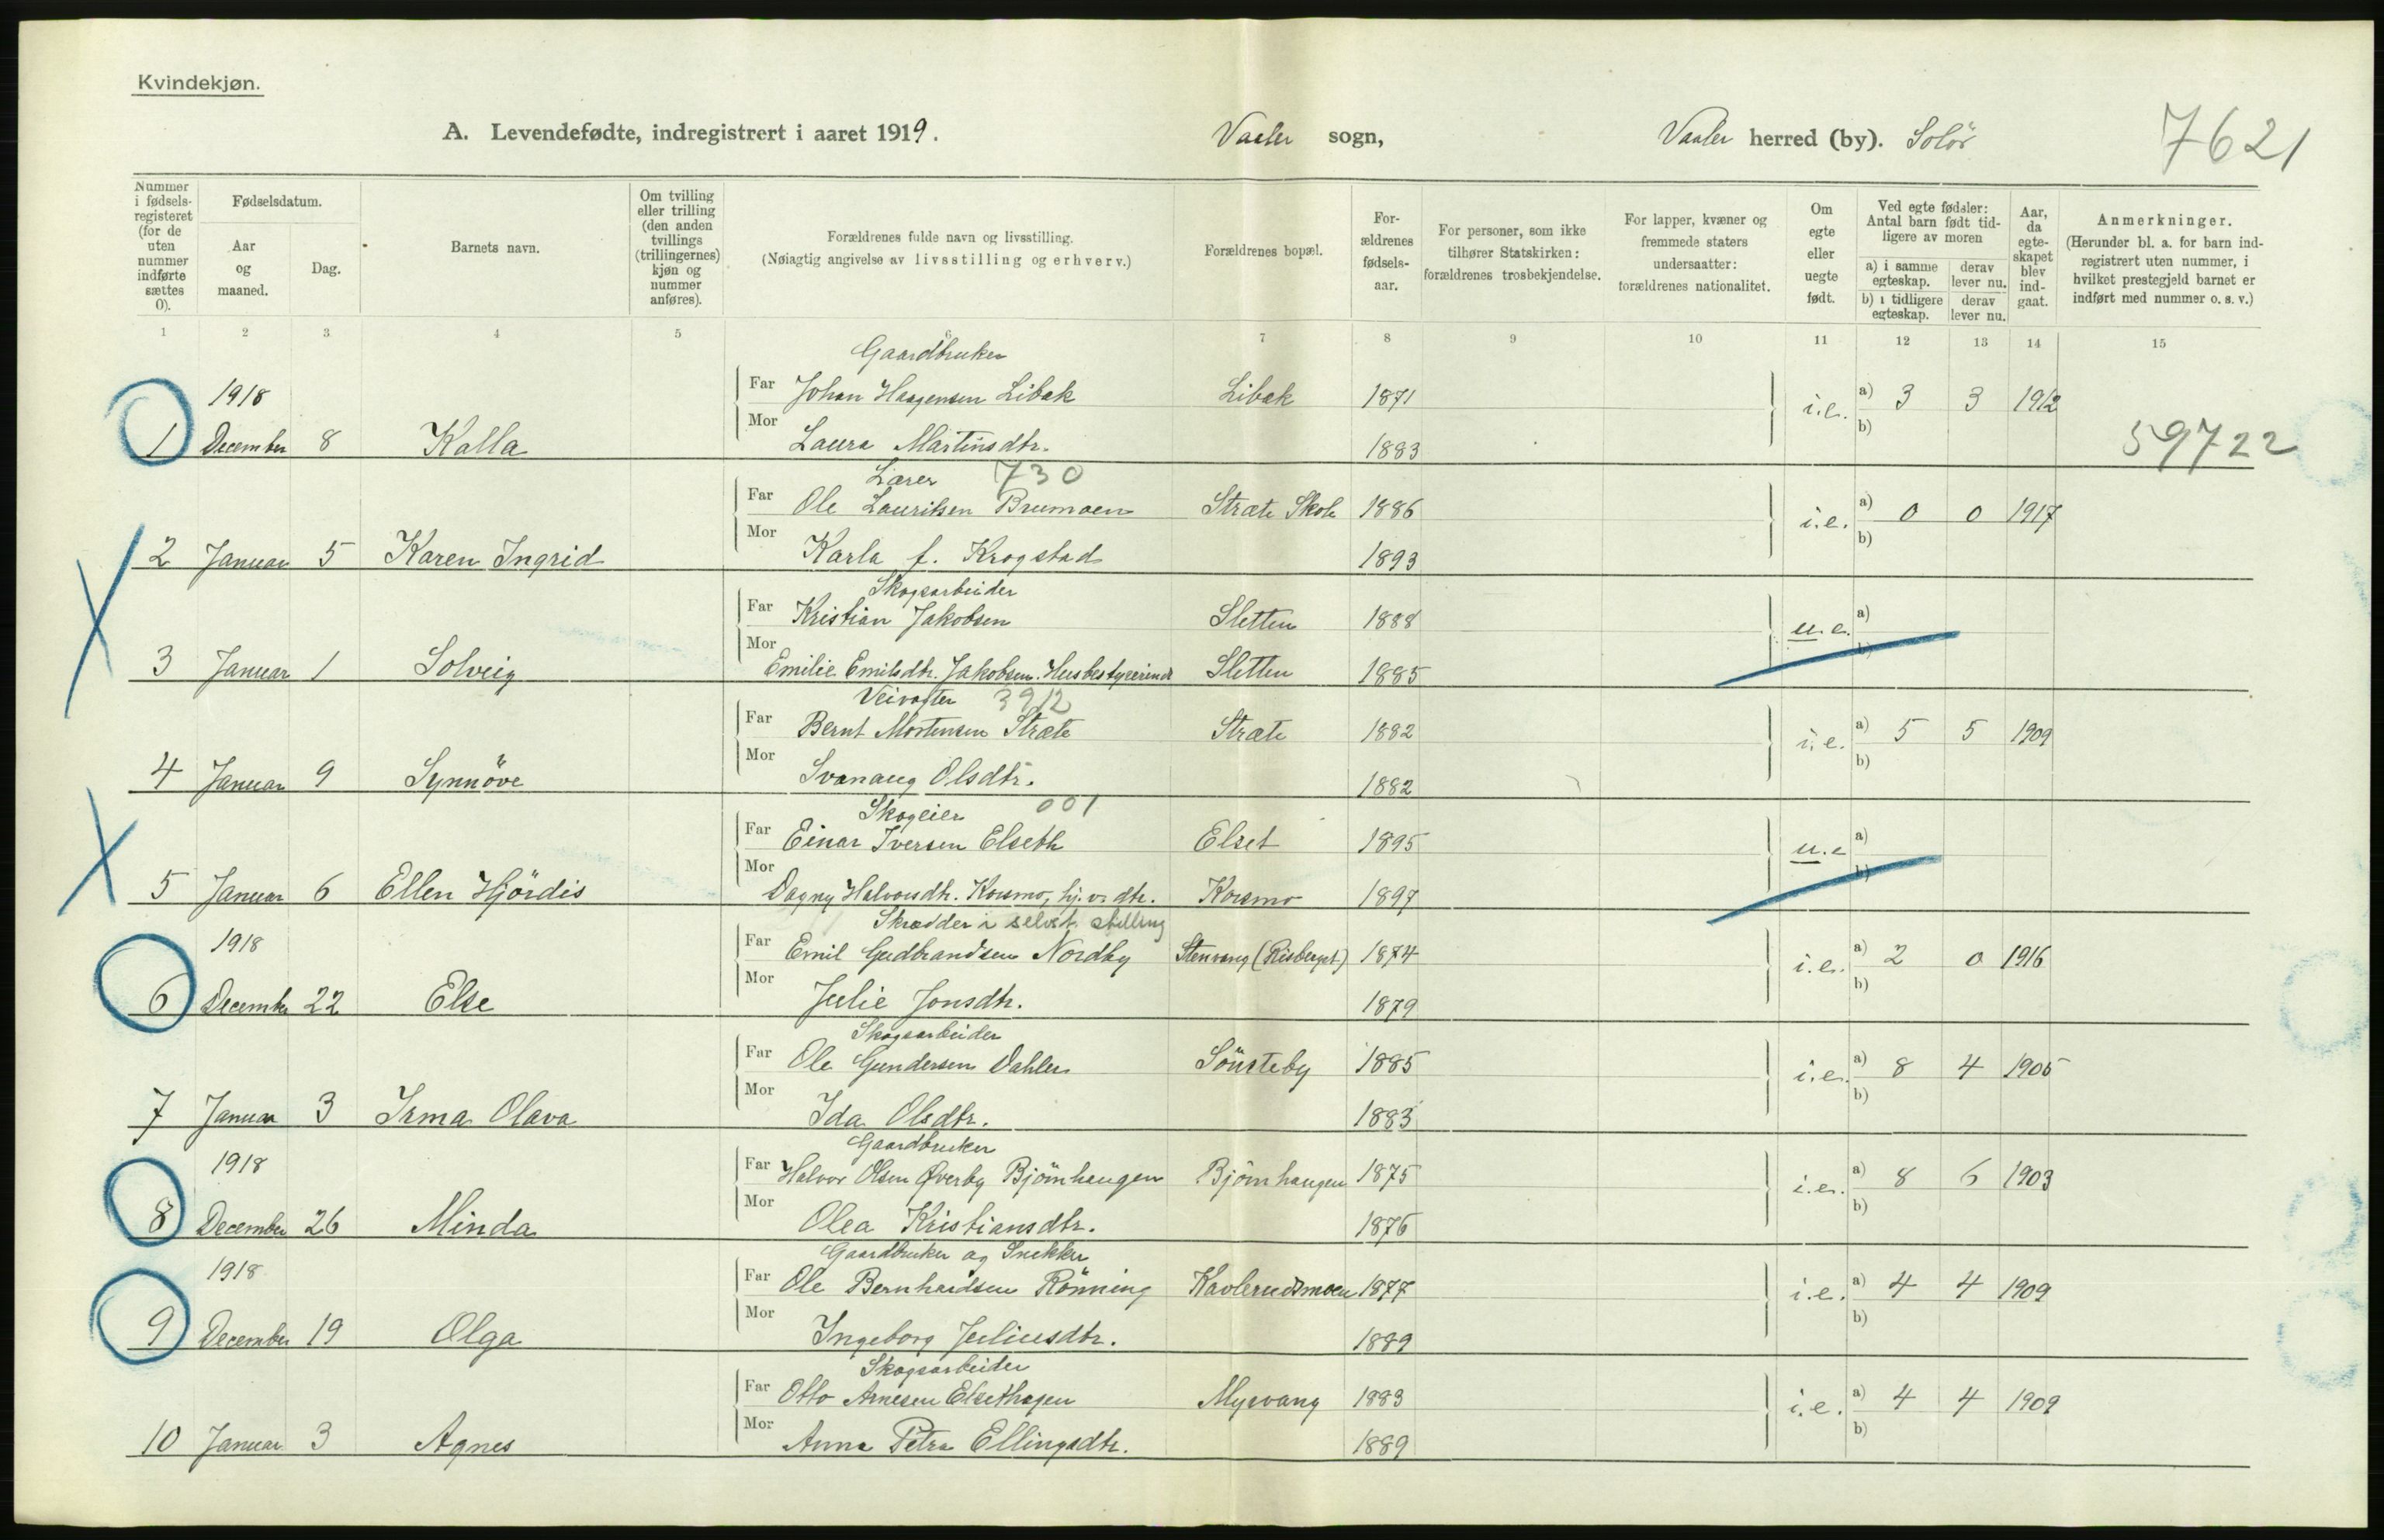 Kvindekjøn.
A. Levendefødte, indregistrert i aaret 1919. Vaaler sogn, Vaaler herred (by). Solör 7621
Nummer i fødselsregisteret (for de uten nummer indførte sættes 0).
Fødselsdatum.
Aar og maaned.
Dag.
Barnets navn.
Om tvilling eller trilling (den anden tvillings (trillingernes) kjøn og nummer anføres).
Forældrenes fulde navn og livsstilling.
(Nøiagtig angivelse av livsstilling og erhverv.)
Forældrenes bopæl.
Forældrenes fødselsaar.
For personer, som ikke tilhører Statskirken: forældrenes trosbekjendelse.
For lapper, kvæner og fremmede staters undersaatter: forældrenes nationalitet.
Om egte eller uegte født.
Ved egte fødsler: Antal barn født tidligere av moren
a) i samme egteskap. derav lever nu.
b) i tidligere egteskap. derav lever nu.
Aar, da egteskapet blev indgaat.
Anmerkninger.
(Herunder bl. a. for barn indregistrert uten nummer, i hvilket prestegjeld barnet er indført med nummer o. s. v.)
1 2 3 4 5 6 7 8 9 10 11 12 13 14 15
Gaardbruker
1918 Far Johan Haagensen Libak Libak 1871 i.e. a) 3 3 1912
1 December 8 Kalla Mor Laura Martinsdtr. 1883 b) 59722
Lærer 730
Far Ole Lauritsen Brumoen Stræte Skole 1886 i.e. a) 0 0 1917
2 Januar 5 Karen Ingrid Mor Karla f. Krogstad 1893 b)
Skogsarbeider
Far Kristian Jakobsen Sletten 1888 u.e. a)
3 Januar 1 Solveig Mor Emilie Emilsdtr. Jakobsen. Husbestyrerinde Sletten 1885 b)
Veivogter 3912
Far Bernt Mortensen Stræte Stræte 1882 i.e. a) 5 5 1909
4 Januar 9 Synnöve Mor Svanaug Olsdtr. 1882 b)
Skogeier 001
Far Einar Iversen Elseth Elset 1895 u.e a)
5 Januar 6 Ellen Hjördis Mor Dagny Halvorsdtr. Kosmo, hj. v. dtr. Kosmo 1897 b)
Skrædder i selvst. stilling
1918 Far Emil Gudbrandsen Nordby Stenvang (Risberget) 1874 i.e. a) 2 0 1916
6 December 22 Else Mor Julie Jonsdtr. 1879 b)
Skogsarbeider
Far Ole Gundersen Dahlen Sönsteby 1885 i.e. a) 8 4 1905
7 Januar 3 Irma Olava Mor Ida Olsdtr. 1883 b)
Gaardbruker
1918 Far Halvor Olsen Øverby Björnhaugen Björnhaugen 1875 i.e. a) 8 6 1903
8 December 26 Minda Mor Olea Kristiansdtr. 1876 b)
Gaardbruker og Snekker
1918 Far Ole Bernhardsen Rönning Kavlerudsmoen 1877 i.e. a) 4 4 1909
9 December 19 Olga Mor Ingeborg Juliusdtr. 1889 b)
Skogsarbeider
Far Otto Arnesen Elsethagen Myrvang 1883 i.e. a) 4 4 1909
10 Januar 3 Agnes Mor Anna Petra Ellingsdtr. 1889 b)